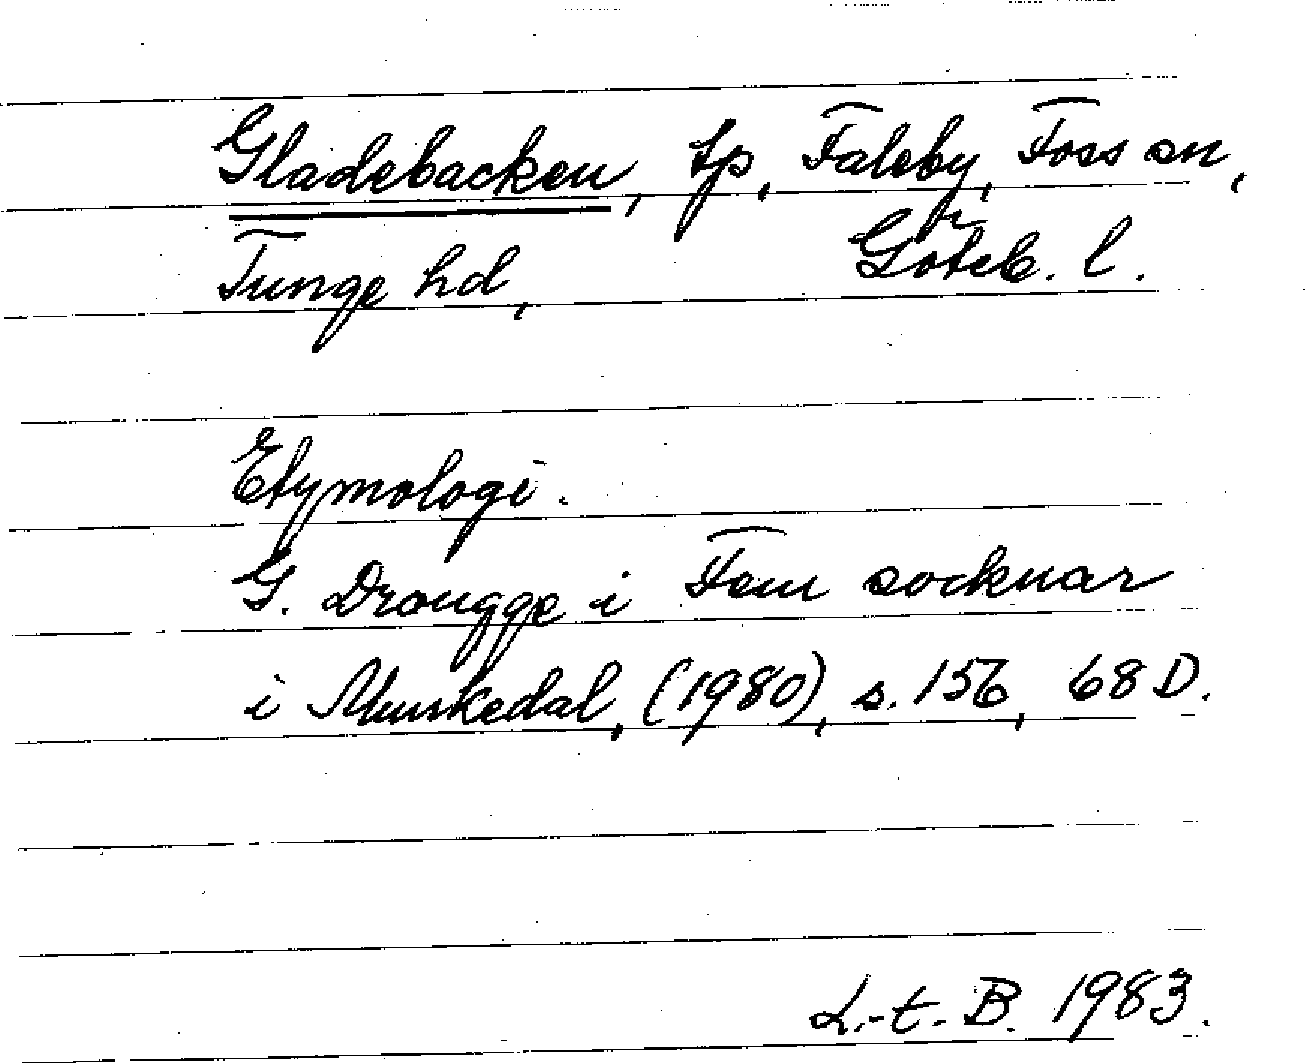 Gladebacken, tp, Faleby, Foss sn,
Tunge hd, Göteb. l.
Etymologi.
G. Drougge i Fem socknar
i Munkedal, (1980), s. 156, 68 D.
L.-t. B. 1983.